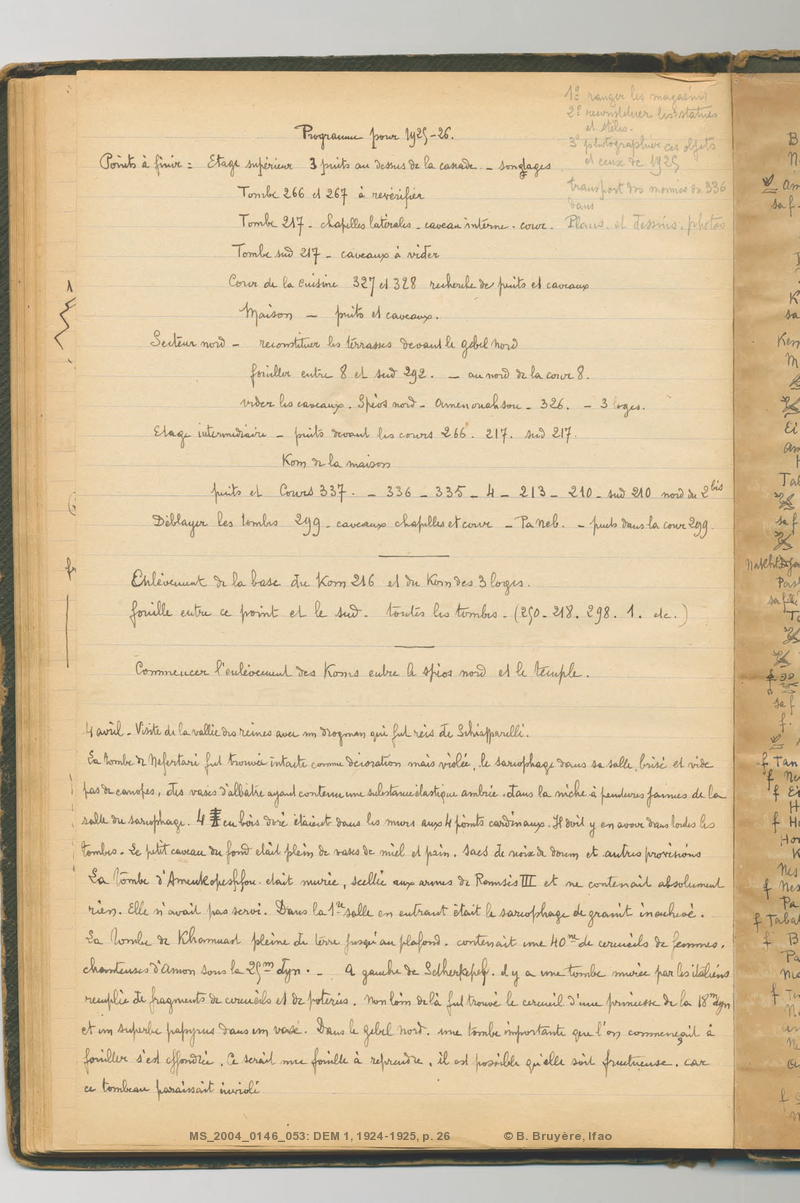 Programme pour 1925-26.
1º ranger les magasins
2º reconstituer les statues
et stèles.
3º photographier ces objets
et ceux de 1925
transport des momies de 336
dans
Plans et dessins, photos
Points à finir : Etage supérieur 3 puits au dessus de la cascade _ sondages
Tombe 266 et 267 à revérifier
Tombe 217 - chapelles latérales - caveau interne . cour.
Tombe sud 217 - caveaux à vider
Cour de la cuisine 327 et 328 recherche de puits et caveaux
Maison _ puits et caveaux.
Secteur nord - reconstituer les terrasses devant le gebel nord
fouiller entre 8 et sud 292. _ au nord de la cour 8.
vider les caveaux. Spéos nord - Amenouahsou - 326. - 3 loges.
Etage intermédiaire - puits devant les cours 266. 217. sud 217.
Kom de la maison
puits et Cours 337. _ 336 _ 335 _ 4 _ 213 _ 210 - sud 210 nord du 2bis
Déblayer les tombes 299 - caveaux chapelles et cour _ Pa Neb. _ puits dans la cour 299.
Enlèvement de la base du Kom 216 et du Kom des 3 loges.
fouille entre ce point et le sud. toutes les tombes - (250. 218. 298. 1. etc.)
Commencer l'enlèvement des Koms entre le spéos nord et le temple.
4 avril - Visite de la vallée des reines avec un drogman qui fut reis de Schiapparelli.
La tombe de Nefertari fut trouvée intacte comme décoration mais violée, le sarcophage dans sa salle, brisé et vide
pas de canopes, des vases d'albâtre ayant contenu une substance élastique ambrée. dans la niche à peintures jaunes de la
salle du sarcophage. 4 𓊽 en bois doré étaient dans les murs aux 4 points cardinaux. Il doit y en avoir dans toutes les
tombes. Le petit caveau du fond était plein de vases de miel et pain. sacs de noix de doum et autres provisions
La tombe d'Amenkopeshfou. était murée, scellée aux armes de Ramsès III et ne contenait absolument
rien. Elle n'avait pas servi. Dans la 1re salle en entrant était le sarcophage de granit inachevé.
La tombe de Khamuast pleine de terre jusqu'au plafond. contenait une 40ne de cercueils de femmes,
chanteuses d'Amon sous la 25me dyn. _ A gauche de Setherkepef. il y a une tombe murée par les italiens
remplie de fragments de cercueils et de poteries. Non loin de là fut trouvé le cercueil d'une princesse de la 18me dyn
et un superbe papyrus dans un vase. Dans le gebel nord. une tombe importante que l'on commençait à
fouiller s'est effondrée. Ce serait une fouille à reprendre, il est possible qu'elle soit fructueuse. car
ce tombeau paraissait inviolé
MS_2004_0146_053: DEM 1, 1924-1925, p. 26 © B. Bruyère, Ifao